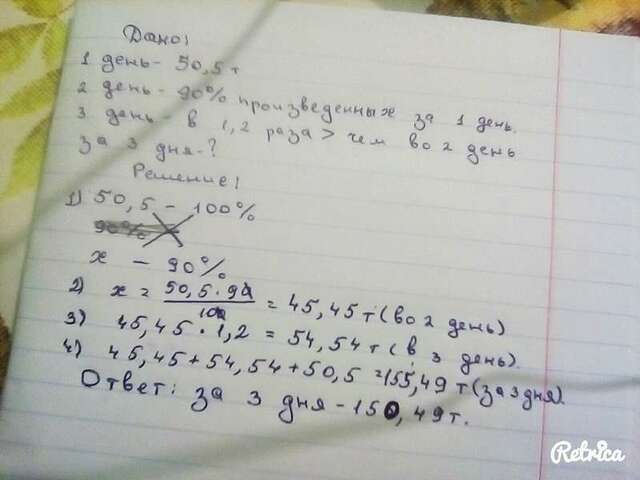 Дано:
1 день - 50,5 т
2 день - 90% произведенных за 1 день.
3 день - в 1,2 раза > чем во 2 день
За 3 дня - ?
Решение:
1) 50,5 - 100%
90%
x - 90%
2) x = 50,5 · 90 / 100 = 45,45 т (во 2 день)
3) 45,45 · 1,2 = 54,54 т (в 3 день).
4) 45,45 + 54,54 + 50,5 = 155,49 т (за 3 дня).
Ответ: за 3 дня - 150,49 т.
Retrica